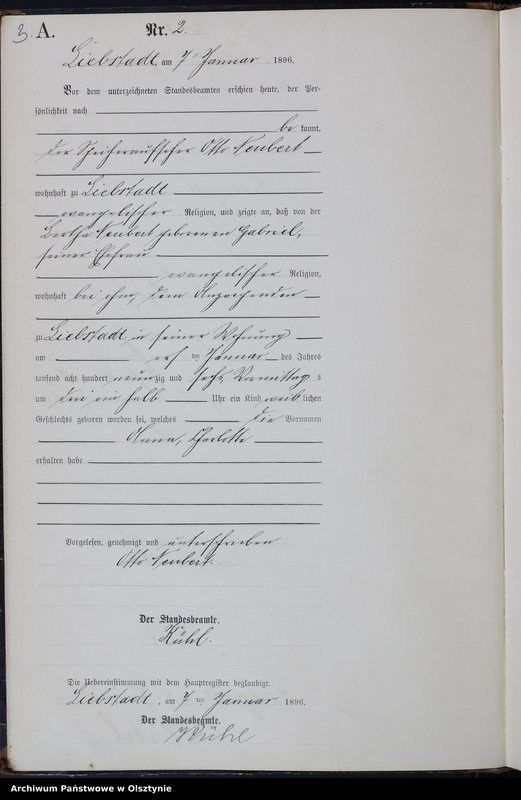 3. A. Nr. 2.
Liebstadt, am 7 Januar 1896.
Vor dem unterzeichneten Standesbeamten erschien heute, der Per-
sönlichkeit nach
be kannt,
der Speicheraufseher Otto Neubert
wohnhaft zu Liebstadt
evangelischer Religion, und zeigte an, daß von der
Bertha Neubert geborenen Gabriel,
seiner Ehefrau
evangelischer Religion,
wohnhaft bei ihm, dem Anzeigenden
zu Liebstadt in seiner Wohnung
am ersten Januar des Jahres
tausend acht hundert neunzig und sechs Vormittags
um drei ein halb Uhr ein Kind weiblichen
Geschlechts geboren worden sei, welches die Vornamen
Anna, Charlotte
erhalten habe
Vorgelesen, genehmigt und unterschrieben
Otto Neubert.
Der Standesbeamte.
Kühl.
Die Uebereinstimmung mit dem Hauptregister beglaubigt.
Liebstadt, am 7 ten Januar 1896.
Der Standesbeamte.
Kühl
Archiwum Państwowe w Olsztynie